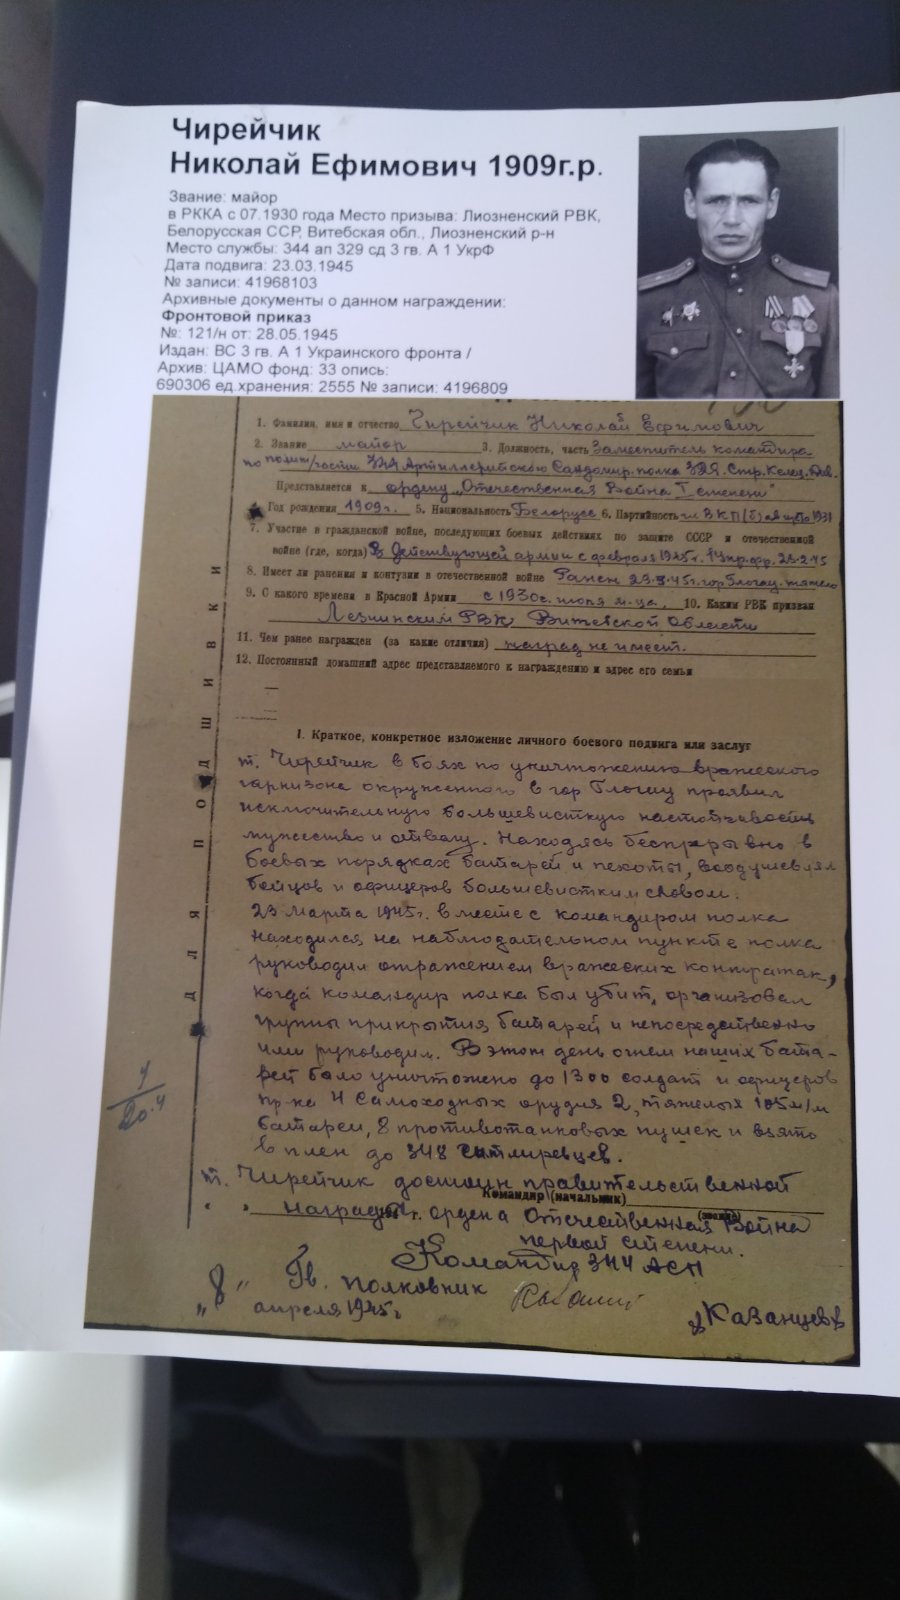 Чирейчик
Николай Ефимович 1909г.р.
Звание: майор
в РККА с 07.1930 года Место призыва: Лиозненский РВК,
Белорусская ССР, Витебская обл., Лиозненский р-н
Место службы: 344 ап 329 сд 3 гв. А 1 УкрФ
Дата подвига: 23.03.1945
№ записи: 41968103
Архивные документы о данном награждении:
Фронтовой приказ
№: 121/н от: 28.05.1945
Издан: ВС 3 гв. А 1 Украинского фронта /
Архив: ЦАМО фонд: 33 опись:
690306 ед.хранения: 2555 № записи: 4196809
1. Фамилия, имя и отчество Чирейчик Николай Ефимович
2. Звание майор 3. Должность, часть Заместитель командира
по полит/части 344 Артиллерийского Сандомир. полка 329 Стр. Келец. Див.
Представляется к ордену „Отечественная Война I степени"
Год рождения 1909г. 5. Национальность Белорусс 6. Партийность чл ВКП(б) 1931
7. Участие в гражданской войне, последующих боевых действиях по защите СССР и отечественной
войне (где, когда) В действующей армии с февраля 1945г. 1 Укр. фр. 23-2-45
8. Имеет ли ранения и контузии в отечественной войне Ранен 23-3-45г. гор Глогау. тяжело
9. С какого времени в Красной Армии с 1930г. июля м-ца, 10. Каким РВК призван
Лезнинским РВК Витебской Области
11. Чем ранее награжден (за какие отличия) наград не имеет.
12. Постоянный домашний адрес представляемого к награждению и адрес его семьи
ДЛЯ ПОДШИВКИ
I. Краткое, конкретное изложение личного боевого подвига или заслуг
т. Чирейчик в боях по уничтожению вражеского
гарнизона окруженного в гор Глогау проявил
исключительную большевисткую настойчивость
мужество и отвагу. Находясь беспрерывно в
боевых порядках батарей и пехоты, воодушевлял
бойцов и офицеров большевистким словом.
23 марта 1945г. вместе с командиром полка
находился на наблюдательном пункте полка
руководил отражением вражеских контратак,
когда командир полка был убит, организовал
группы прикрытия батарей и непосредственно
ими руководил. В этот день огнем наших бата-
рей было уничтожено до 1300 солдат и офицеров
пр-ка 4 Самоходных орудия 2, тяжелых 105 м/м
батареи, 8 противотанковых пушек и взято
в плен до 348 гитлеровцев.
т. Чирейчик достоин правительственной
Командир (начальник)
награды ордена Отечественная Война
(звание)
первой степени.
Командир 344 АСП
Гв. полковник
Казанцев
„8" апреля 1945г